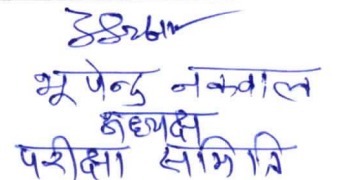 भूपेन्द्र नकवाल
अध्यक्ष
परीक्षा समिति